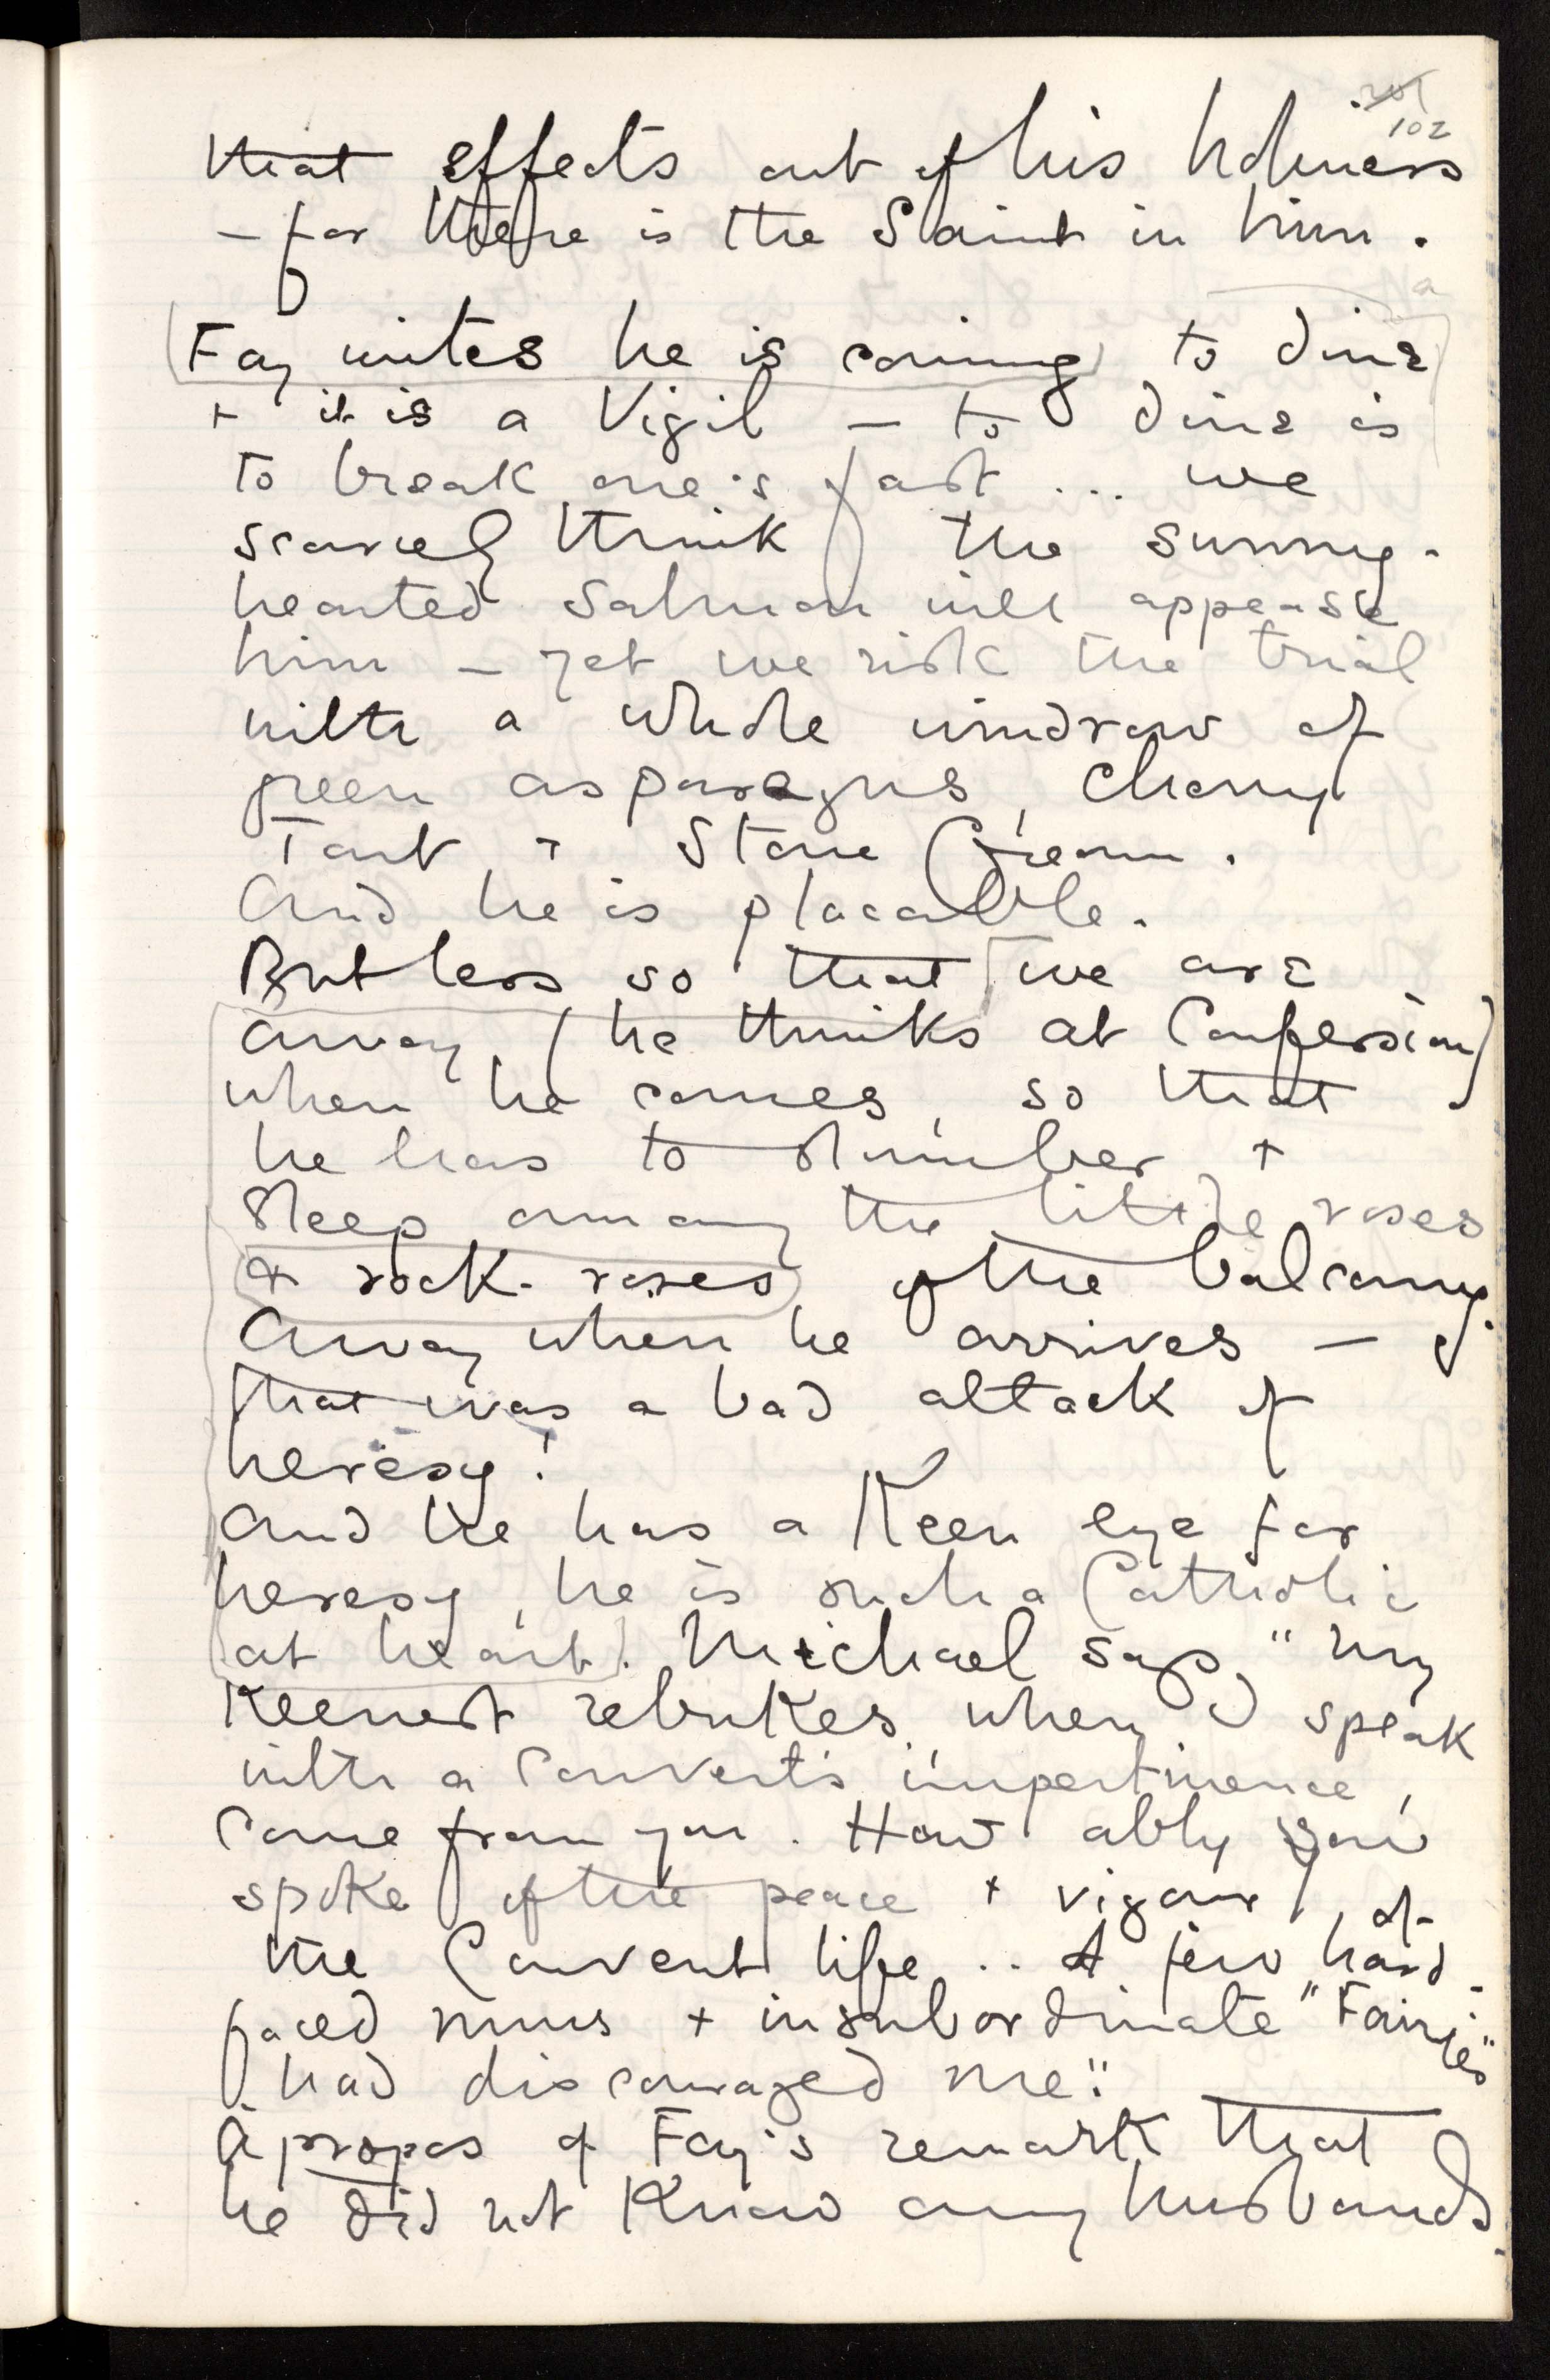 102
that effects out of his holiness
– for there is the Saint in him.
Fay writes he is coming to dine
+ it is a Vigil – to dine is
to break one's fast ... we
scarcely think the sunny-
hearted Salmon will appease
him – yet we risk the trial
with a whole windrow of
green asparagus, cherry
Tart, + Stone Cream.
And he is placable.
But less so that we are
away (he thinks at Confession)
when he comes, so that
he has to slumber +
sleep among the little roses
+ rock-roses of the balcony.
Away when he arrives –
that was a bad attack of
heresy!
And he has a Keen eye for
heresy, he is such a Catholic
at heart. Michael says, "My
Keenest rebukes, when I speak
with a convert's impertinence,
come from you. How ably you
spoke of the peace + vigour, of
the Convent life .. A few hard-
faced nuns + insubordinate "Fairies"
had discouraged me".
Apropos of Fay's remark that
he did not Know any husbands.